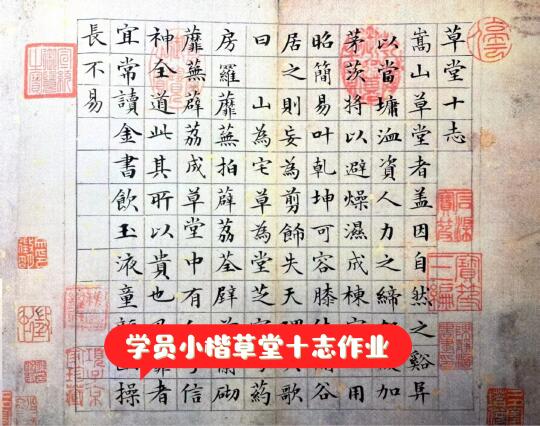 草堂十志
嵩山草堂者盖因自然之谿阜
以當墉洫資人力之締加
茅茨將以避燥濕成棟用
昭簡易叶乾坤可容膝谷
居之則妄為剪飾失天歌
曰山為宅草為堂芝葯
房羅蘼蕪拍薜荔荃壁蘭砌
蘼蕪薜荔成草堂中有信
神全道此其所以貴也者
宜常讀金書飲玉液童操
長不易
学员小楷草堂十志作业